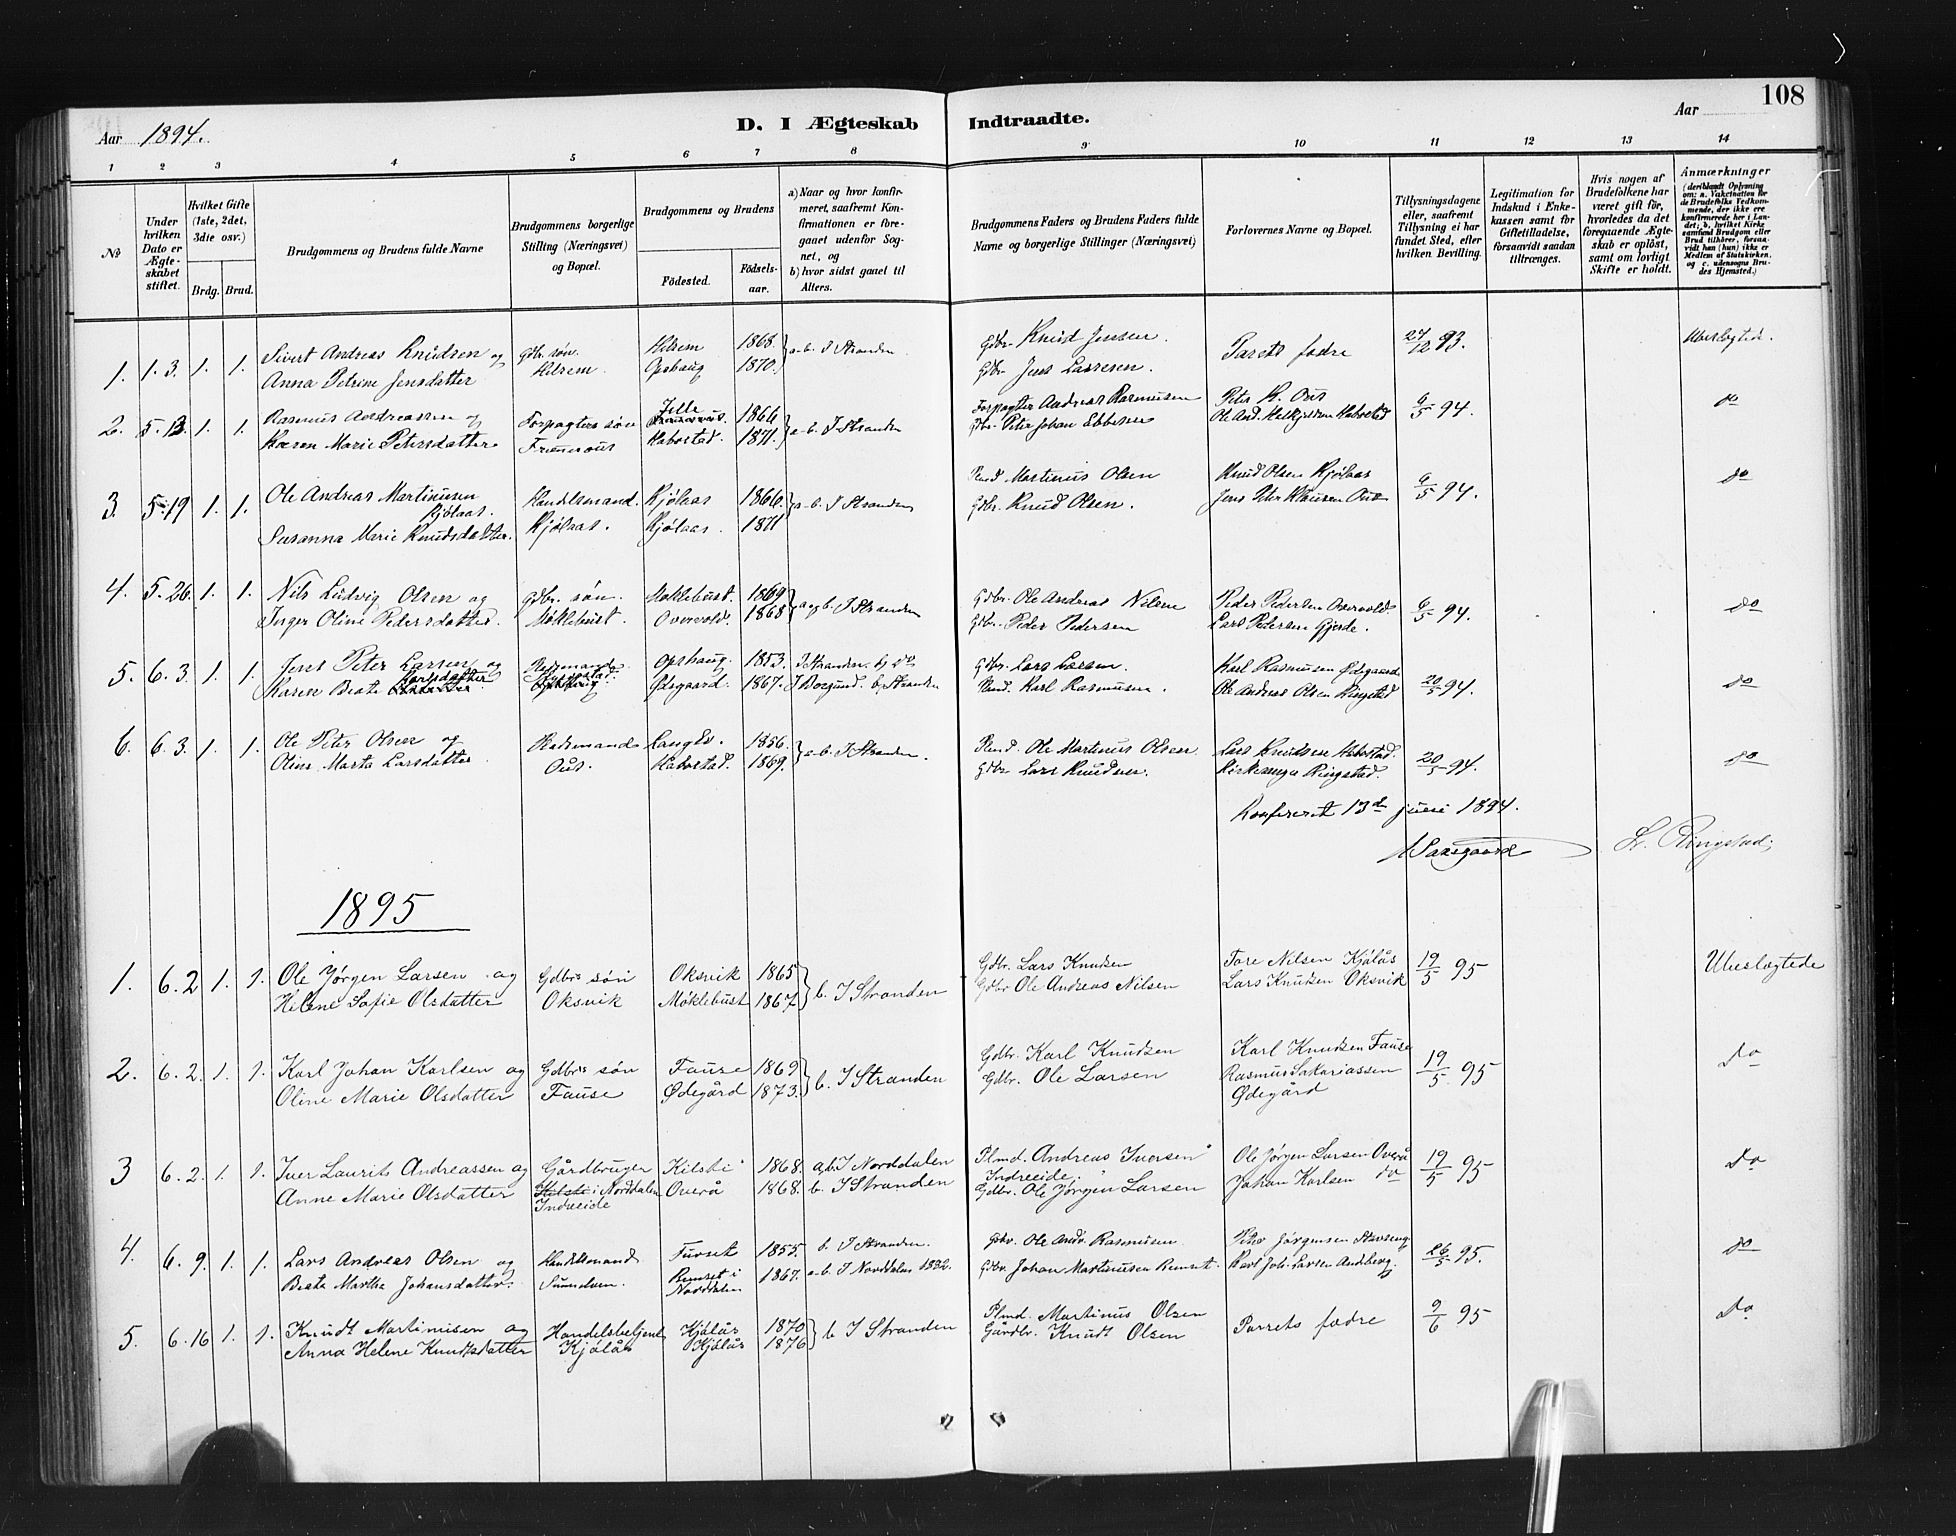 108
Aar 1894.
D. I Ægteskab Indtraadte.
Aar
1 2 3 4 5 6 7 8 9 10 11 12 13 14
№
Under hvilken Dato er Ægteskabet stiftet.
Hvilket Gifte (1ste, 2det, 3die osv.)
Brdg. Brud.
Brudgommens og Brudens fulde Navne
Brudgommens borgerlige Stilling (Næringsvei) og Bopæl.
Brudgommens og Brudens
Födested. Födselsaar.
a) Naar og hvor konfirmeret, saafremt Konfirmationen er foregaaet udenfor Sognet, og
b) hvor sidst gaaet til Alters.
Brudgommens Faders og Brudens Faders fulde Navne og borgerlige Stillinger (Næringsvei)
Forlovernes Navne og Bopæl.
Tillysningsdagene eller, saafremt Tillysning ei har fundet Sted, efter hvilken Bevilling.
Legitimation for Indskud i Enkekassen samt for Giftetilladelse, forsaavidt saadan tiltrænges.
Hvis nogen af Brudefolkene har været gift för, hvorledes da det foregaaende Ægteskab er oplöst, samt om lovligt Skifte er holdt.
Anmærkninger
(deriblandt Oplysning om: a. Vakcination for de Brudefolks Vedkommende, der ikke ere konfirmerede her i Landet; b. hvilket Kirkesamfund Brudgom eller Brud tilhörer, forsaavidt han (hun) ikke er Medlem af Statskirken, og c. udensogns Brudes Hjemsted.)
1. 1.3. 1. 1. Sivert Andreas Knudsen og Gdbr. søn Helsem 1868. a-b. I Stranden Gdbr. Knud Jensen. Parets fædre 27/12 93. Ubeslægtede.
Anna Petrine Jensdatter Helsem. Opshaug 1870. Gdbr Jens Larsen.
2. 5.13. 1. 1. Rasmus Andreassen og Forpagters søn 1866 a-b. I Stranden Forpagter Andreas Rasmusen Peter Ous 6/5 94. do
Karen Marie Petersdatter Habostad. 1871. Gdbr. Peter Johan Ebbesen Ole And. Habostad
3. 5.19 1. 1. Ole Andreas Martinusen Handelsmand. Kjølaas 1866. a-b. I Stranden Plmd. Martinus Olsen Knud Olsen Kjølaas 6/5 94. do
Kjølaas.
Susanna Marie Knudsdatter. Kjølaas. Kjølaas. 1871 Gdbr. Knud Olsen. Jens Peter Klausen Ous
4. 5.26. 1. 1. Nils Ludvig Olsen og Gdbr. søn. Møklebust. 1869 a og b. I Stranden Gdbr. Ole Andreas Nilsen Peder Pedersen Overvold. 6/5 94. do
Inger Oline Pedersdatter. Møklebust. Overvold. 1868 Gdbr. Peder Pedersen Lars Pedersen Gjerde.
5. 6.3. 1. 1. Jens Peter Larsen og Opshaug. 1853. I Stranden. b) do Gdbr. Lars Larsen. Karl Rasmusen Ødegaard 20/5 94. do
Karen Beate Karlsdatter Ødegaard. 1867. I Borgund. b) Stranden Plmd. Karl Rasmusen. Ole Andreas Olsen Ringstad
6. 6.3. 1. 1. Ole Peter Olsen og Langlo. 1856. a-b. I Stranden. Plmd. Ole Martinus Olsen Lars Knudsen Habostad. 20/5 94. do
Oline Marta Larsdatter. Ous. Habostad. 1869. Gdbr Lars Knudsen. Kirkesanger Ringstad.
Konfereret 13de juni 1894.
Saxegaard L. Ringstad;
1895
1. 6.2 1. 1. Ole Jørgen Larsen og Gdbrs søn Oksvik 1865 b. I Stranden Gdbr. Lars Knudsen Tore Nilsen Kjølås 19/5 95 Ubeslægtede
Helene Sofie Olsdatter Oksvik Møklebust 1867 Gdbr Ole Andreas Nilsen Lars Knudsen Oksvik
2. 6.2. 1. 1. Karl Johan Karlsen og Gdbrs søn Fause 1869 b. I Stranden Gdbr. Karl Knudsen Karl Knudsen Fause 19/5 95 do
Oline Marie Olsdatter Fause Ødegård 1873. Gdbr. Ole Larsen Rasmus Sakariassen
Ødegård
3 6.2. 1. 1. Iver Laurits Andreassen og Gårdbruger Kilsti 1868. a, b. I Norddalen Plmd. Andreas Iversen Ole Jørgen Larsen Overå 19/5 95 do
Indreeide.
Anne Marie Olsdatter Kilsti i Norddalen Overå 1868. b. I Stranden Gdbr. Ole Jørgen Larsen Johan Karlsen do
Indreeide
4. 6.9. 1. 1. Lars Andreas Olsen og Handelsmand Furset 1855. b. I Stranden. Gdbr. Ole Andr. Rasmusen Peter Jørgensen 26/5 95. do
Beate Martha Johansdatter. Remset i 1867. a-b. I Norddalen 1882. Gdbr. Johan Martinusen Remset. Karl Joh. Larsen
Norddalen
5. 6.16 1. 1. Knudt Martinusen og Handelsbetjent Kjølås 1870 b I Stranden Plmd. Martinus Olsen Parrets fædre 9/6 95 do
Anna Helene Knudtsdatter Kjølås Kjølås 1876 Gårdbr. Knudt Olsen